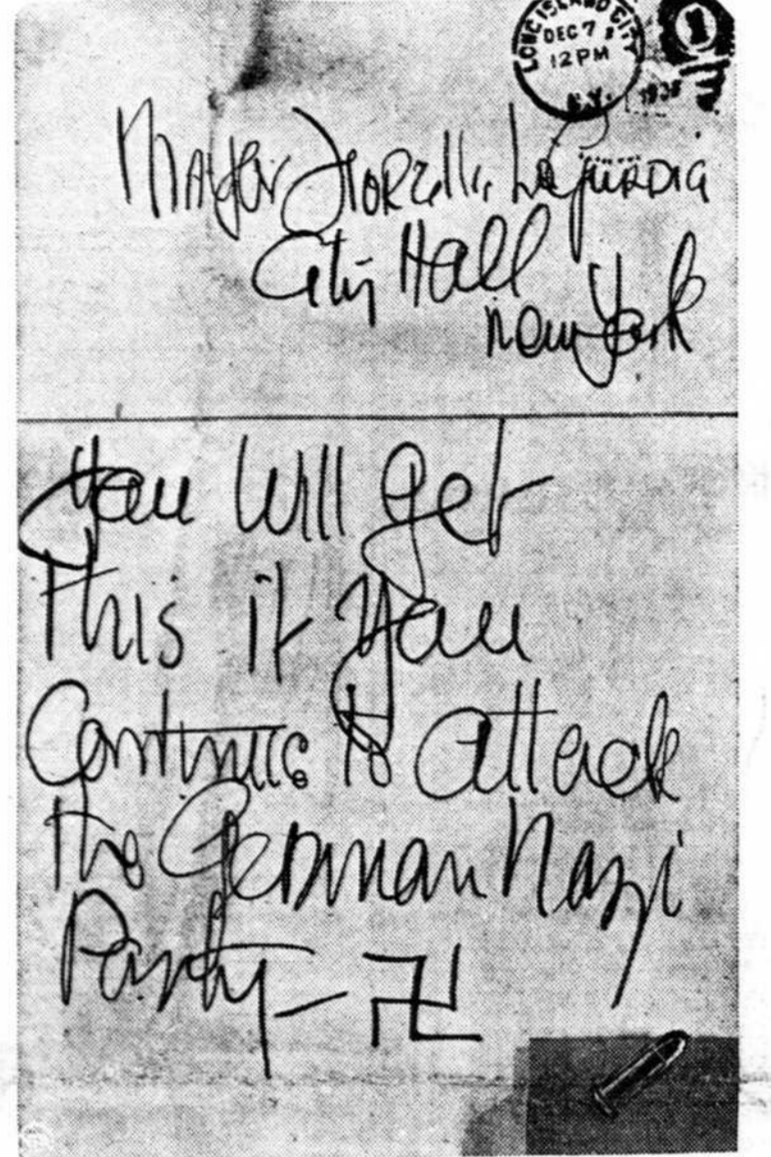 LONG ISLAND CITY
DEC 7
12 PM
N.Y.
1938
1
Mayor Fiorello Laguardia
City Hall
New York
You Will get
This if You
Continue to attack
the German Nazi
Party —